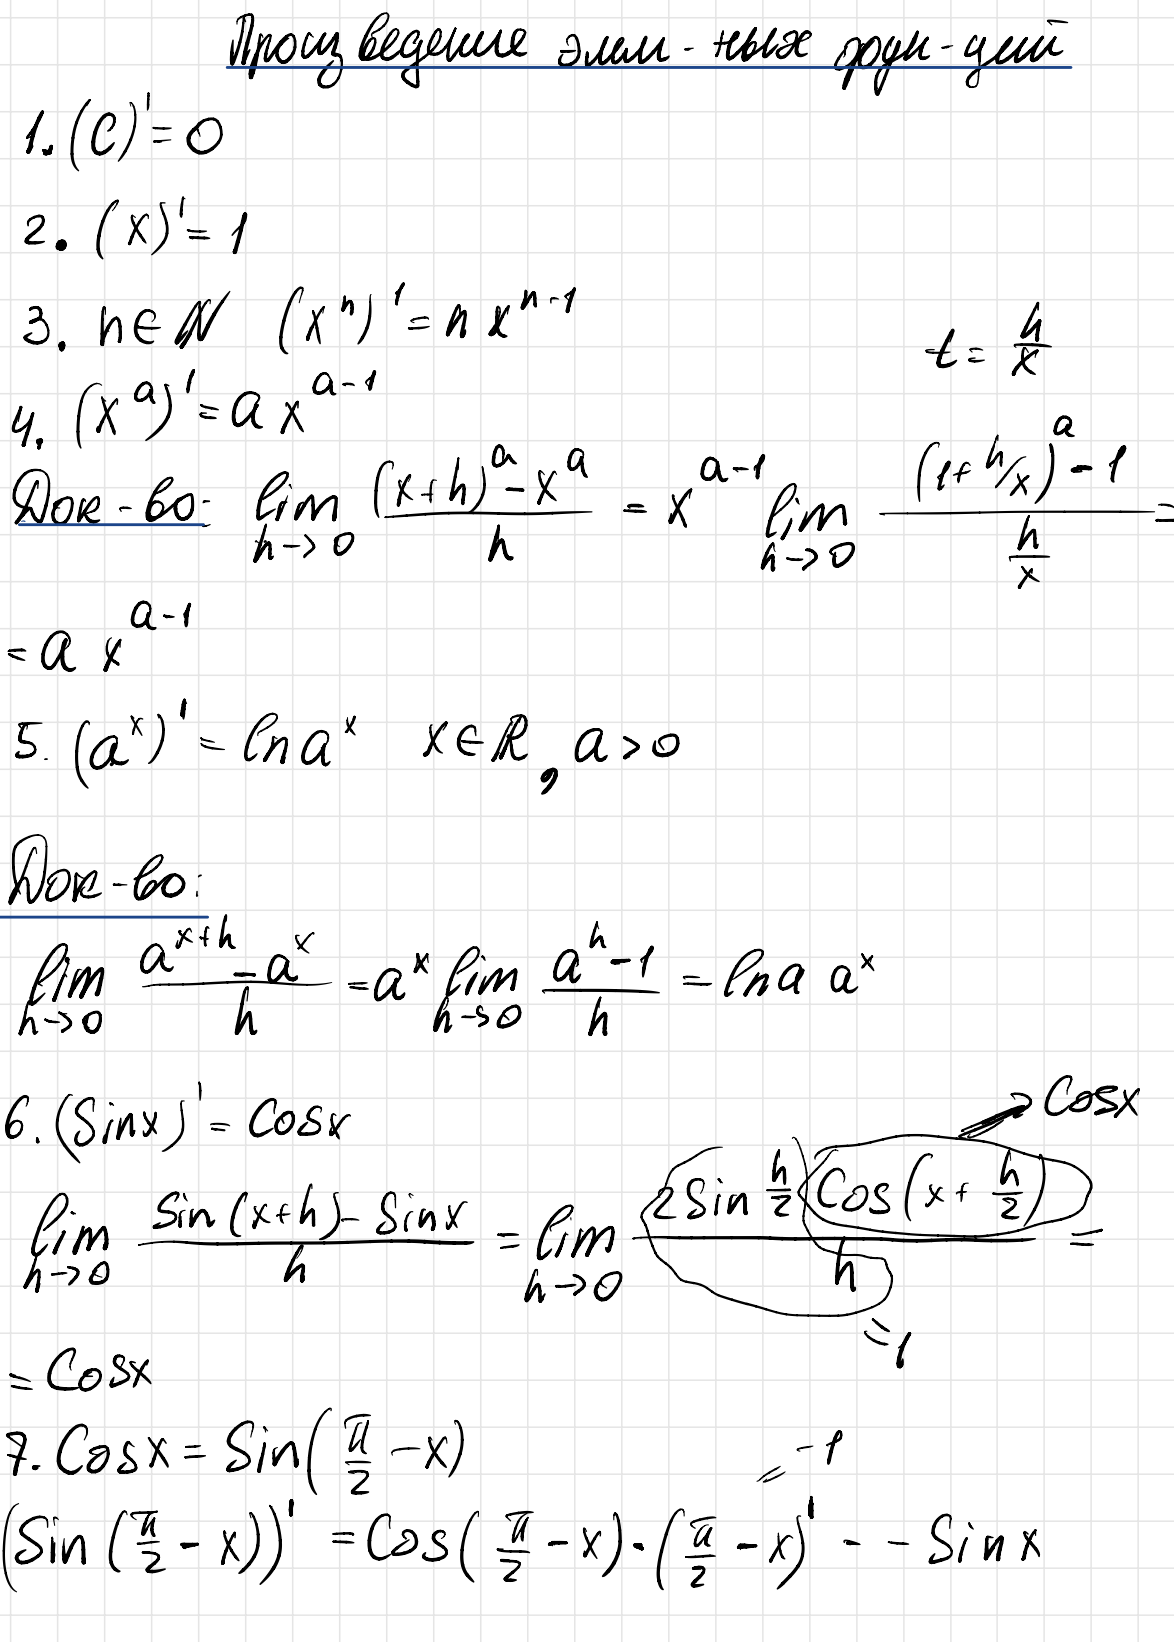 Произведение элем-ных фун-ций
1. (C)' = 0
2. (x)' = 1
3. n ∈ ℕ (xⁿ)' = n xⁿ⁻¹
t = h/x
4. (x^a)' = a x^(a-1)
Док-во: lim h→0 ((x+h)^a - x^a)/h = x^(a-1) lim h→0 ((1+h/x)^a - 1)/(h/x) =
= a x^(a-1)
5. (a^x)' = ln a^x x ∈ ℝ, a > 0
Док-во:
lim h→0 (a^(x+h) - a^x)/h = a^x lim h→0 (a^h - 1)/h = ln a a^x
6. (Sin x)' = Cos x
→ Cos x
lim h→0 (Sin (x+h) - Sin x)/h = lim h→0 (2 Sin h/2 Cos (x + h/2))/h =
= 1
= Cos x
7. Cos x = Sin (π/2 - x)
= -1
(Sin (π/2 - x))' = Cos (π/2 - x) · (π/2 - x)' - - Sin x